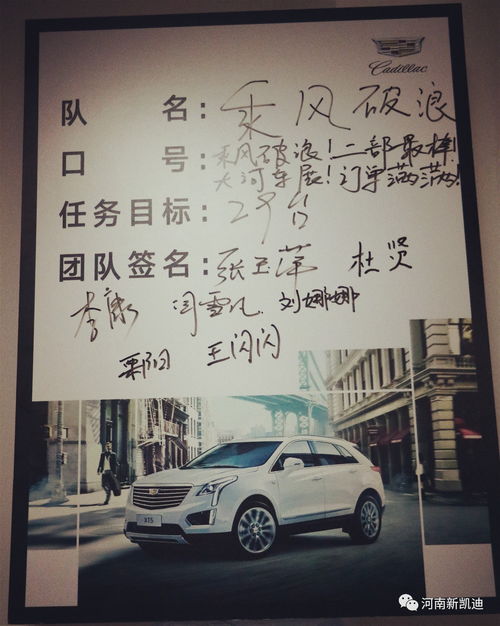 Cadillac
队 名：乘风破浪
口 号：乘风破浪！二部最棒！
大河车展！订单满满！
任务目标：29台
团队签名：张玉萍 杜贤
李康 闫雪凡 刘娜娜
栗阳 王闪闪
XT5
河南新凯迪